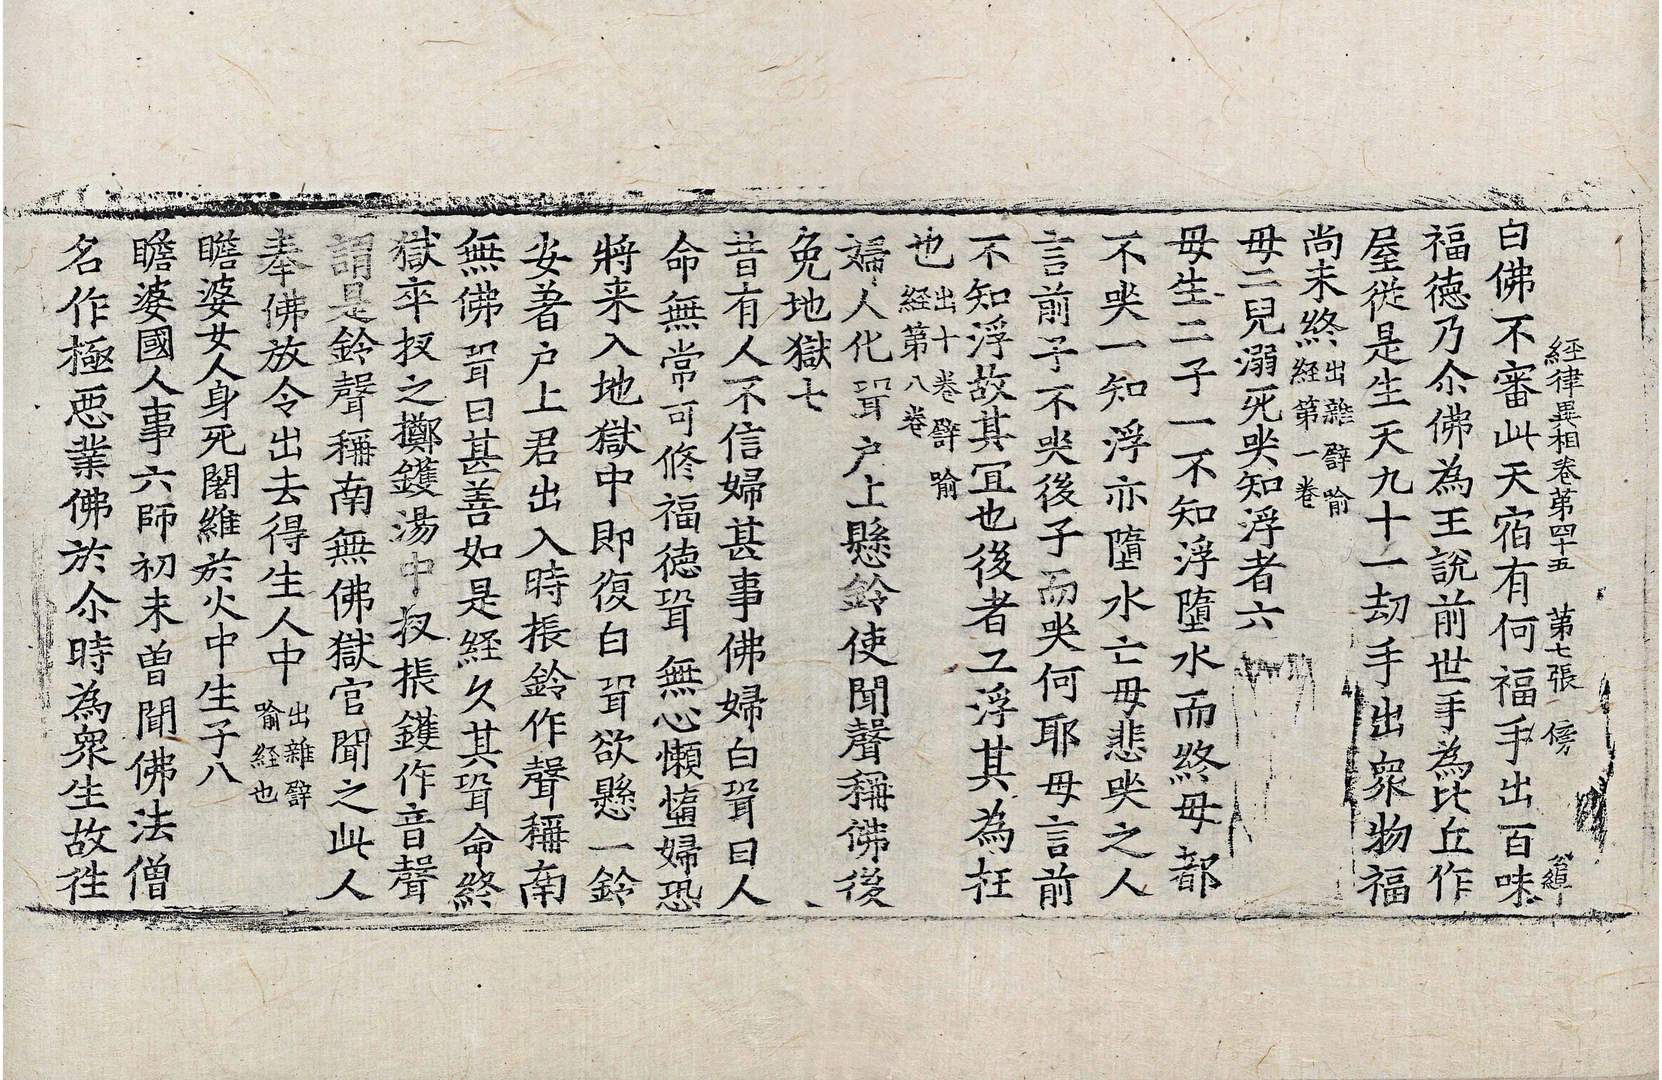 經律異相卷第四十五 第七張 傍
白佛不審此天宿有何福手出百味
福德乃尒佛為王說前世手為比丘作
屋從是生天九十一劫手出衆物福
尚未終出雜譬喻經第一卷
母二兒溺死哭知浮者六
母生二子一不知浮墮水而終母都
不哭一知浮亦墮水亡母悲哭之人
言前子不哭後子而哭何耶母言前
不知浮故其冝也後者工浮其為抂
也出十卷譬喻經第八卷
婦人化聟户上懸鈴使聞聲稱佛後
免地獄七
昔有人不信婦甚事佛婦白聟曰人
命無常可修福德聟無心懶憜婦恐
將来入地獄中即復白聟欲懸一鈴
安著户上君出入時振鈴作聲稱南
無佛聟曰甚善如是経久其聟命終
獄卒扠之擲鑊湯中扠振鑊作音聲
謂是鈴聲稱南無佛獄官聞之此人
奉佛放令出去得生人中出雜譬喻経也
瞻婆女人身死闍維於火中生子八
瞻婆國人事六師初未曽聞佛法僧
名作極惡業佛於尒時為衆生故徃